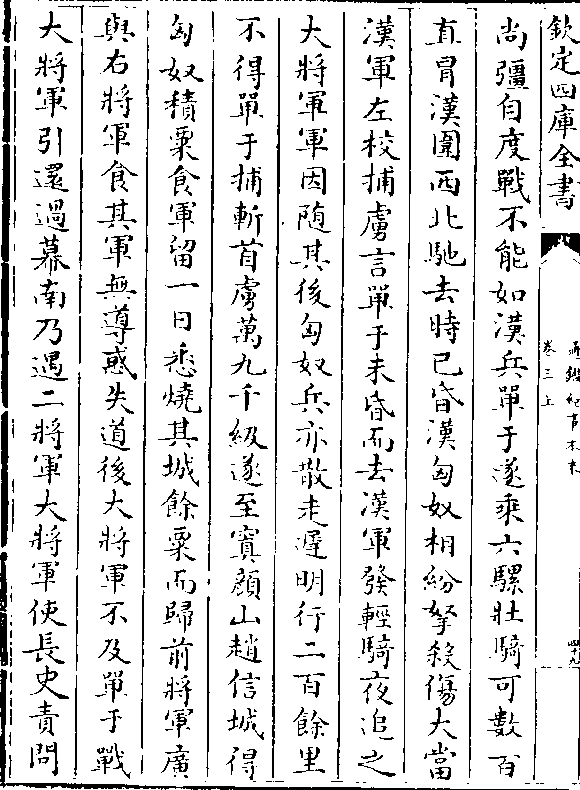 欽定四庫全書
通鑑紀事本末
卷三上
四十九
尚彊自度戰不能如漢兵單于遂乘六騾壯騎可數百
直冒漢圍西北馳去時已昏漢匈奴相紛拏殺傷大當
漢軍左校捕虜言單于未昏而去漢軍發輕騎夜追之
大將軍軍因随其後匈奴兵亦散走遲明行二百餘里
不得單于捕斬首虜萬九千級遂至窴顔山趙信城得
匈奴積粟食軍留一日悉燒其城餘粟而歸前將軍廣
與右將軍食其軍無導惑失道後大將軍不及單于戰
大將軍引還過幕南乃遇二將軍大將軍使長史責問